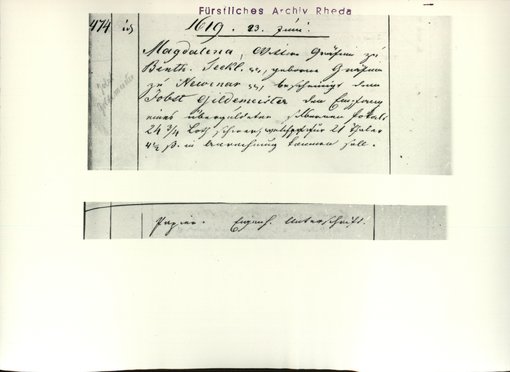 Fürstliches Archiv Rheda
474
1619. 23. Juni.
Magdalena, Witwe Gräfin zu
Benth. Teckl. etc, geborene Gräfin
zu Newenar etc, bescheinigt dem
Jobst Gildemeister den Empfang
eines übergoldeten silbernen Pokals
24 3/4 Loth schwer, 21 Thaler
4 1/2 ß. in Anrechnung kommen soll.
Papier. Eigenh. Unterschrift.